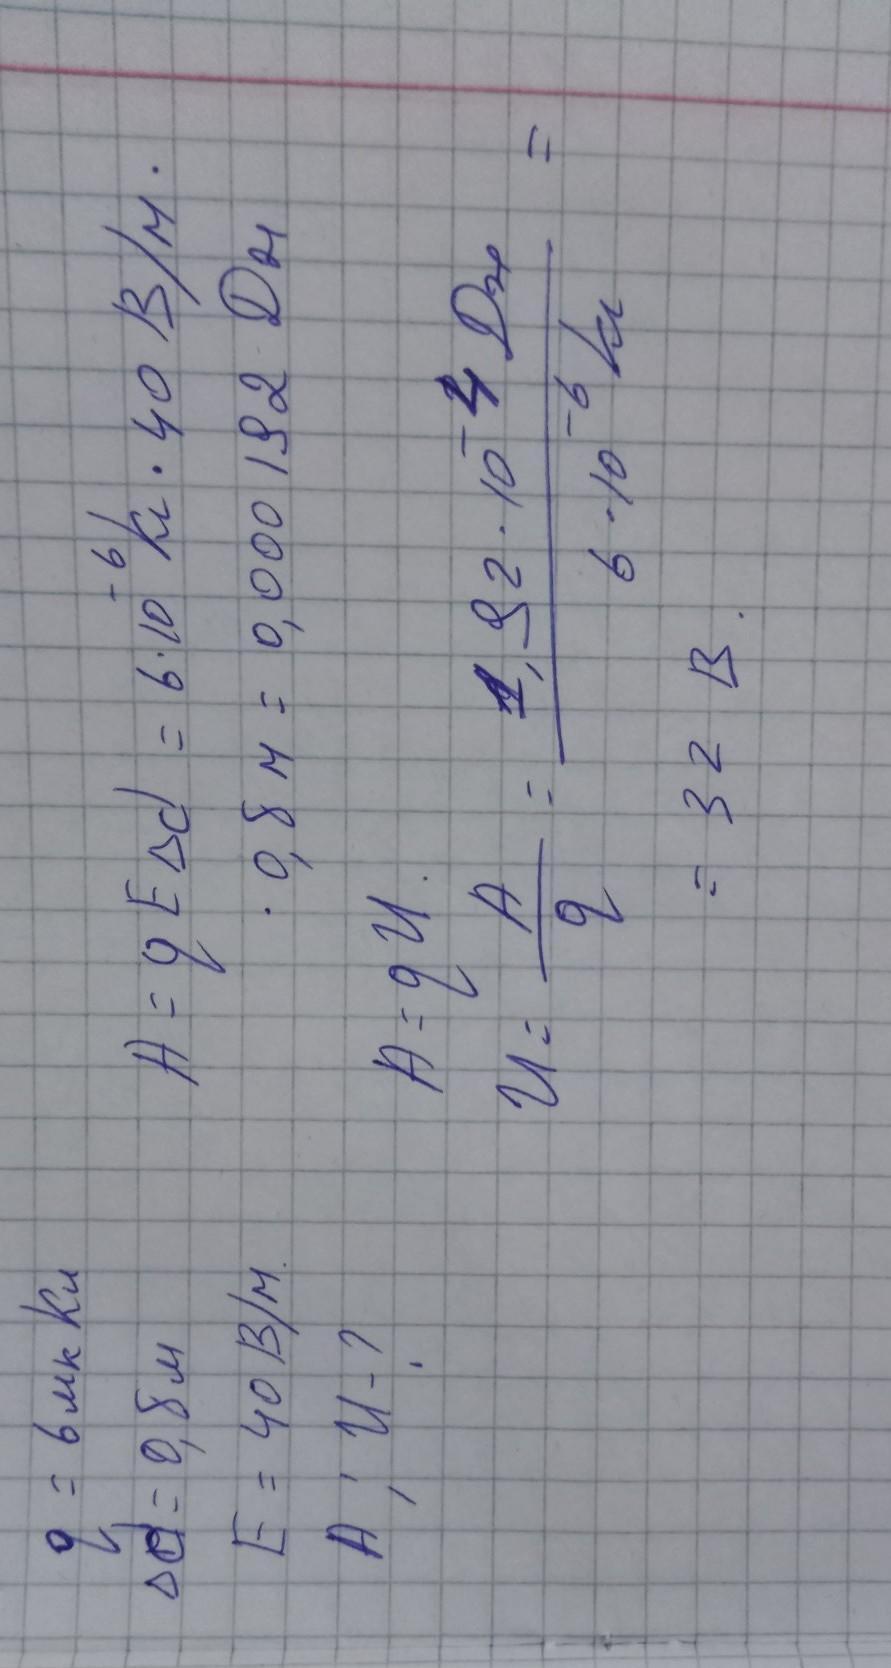 q = 6 мкКл
Δd = 0,8 м
E = 40 В/м.
A, U - ?
A = qEΔd = 6·10⁻⁶ Кл · 40 В/м ·
· 0,8 м = 0,000192 Дж
A = qU.
U = A/q = 1,92·10⁻⁴ Дж / 6·10⁻⁶ Кл =
= 32 В.